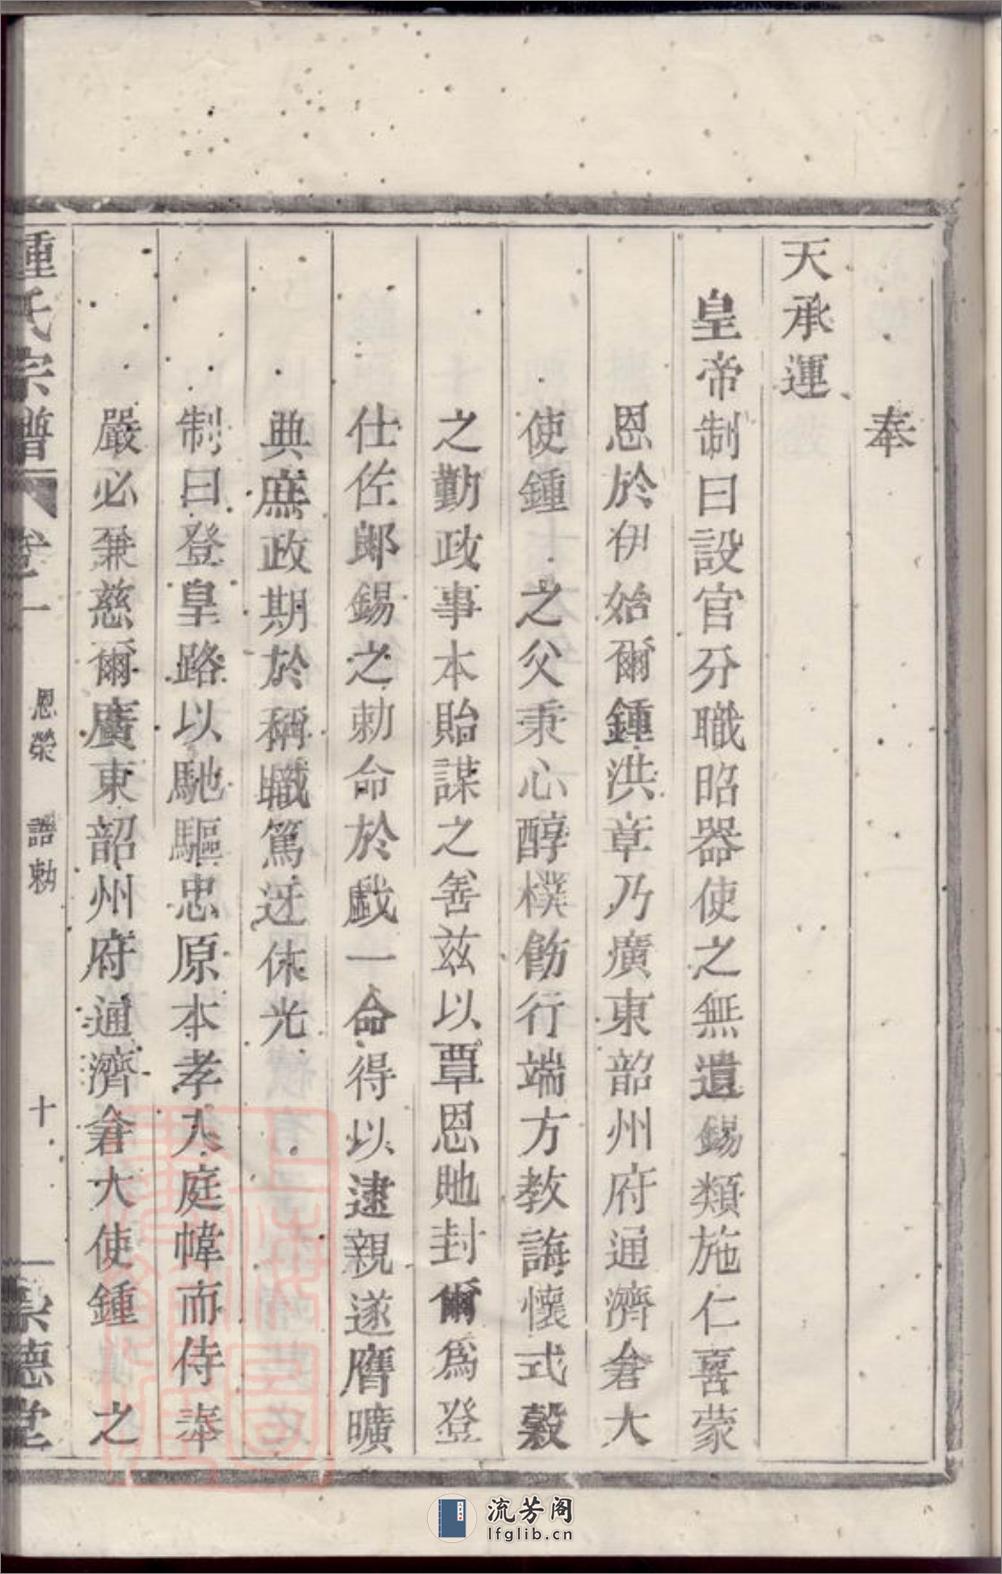 奉
天承運
皇帝制曰設官分職昭器使之無遺錫類施仁喜蒙
恩於伊始爾鍾洪章乃廣東韶州府通濟倉大
使鍾 之父秉心醇樸飭行端方教誨懷式穀
之勤政事本貽謀之善兹以覃恩貤封爾為登
仕佐郎錫之勅命於戲一命得以逮親遂膺曠
典庶政期於稱職篤迓休光
制曰登皇路以馳驅忠原本孝入庭幃而侍奉
嚴必兼慈爾廣東韶州府通濟倉大使鍾 之
鍾氏宗譜 卷一 恩榮 誥勅 十 崇德堂
流芳阁
lfglib.cn